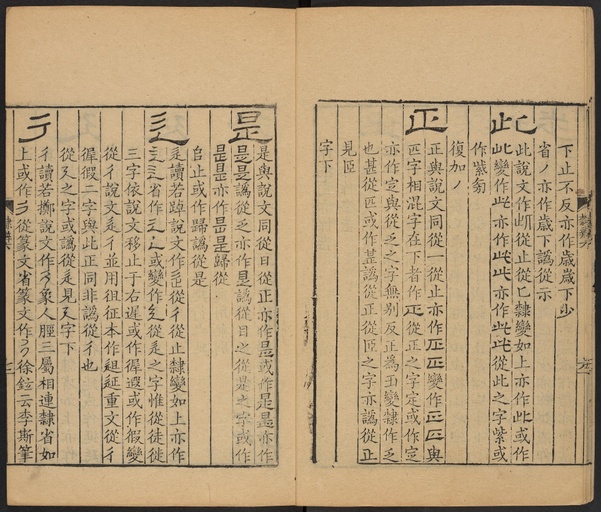 下止不反亦作歲歲下少
省ノ亦作歲下譌從示
此
此說文作從止從匕隸變如上亦作此或作
此變作此亦作此此亦作此此從此之字紫或
作紫
復加ノ
正
正與說文同從一從止亦作正正變作正正與
匹字相混字在下者作正從正之字定或作定
亦作定與從乏之字無別反正為乏變隸作乏
也甚從匹或作甚譌從正從匝之字亦譌從正
見匝
字下
是
是與說文同從日從正亦作是或作是是亦作
是是譌從乏亦作是譌從日之從是之字或作
是是亦作是是歸從
𠂤止或作歸譌從是
辵
辵讀若踔說文作從彳從止隸變如上亦作
辶辶省作辶辶或變作從辵之字惟從徒徙
三字依說文移止于右遲或作徲遐或作徦變
從彳說文辵彳並用徂征本作䢐延重文從彳
徲徦二字與此正同非譌從彳也
從廴之字或譌從辵見廴字下
彳
彳讀若擲說文作象人脛三屬相連隸省如
上或作彳從篆文省篆文作徐鉉云李斯筆